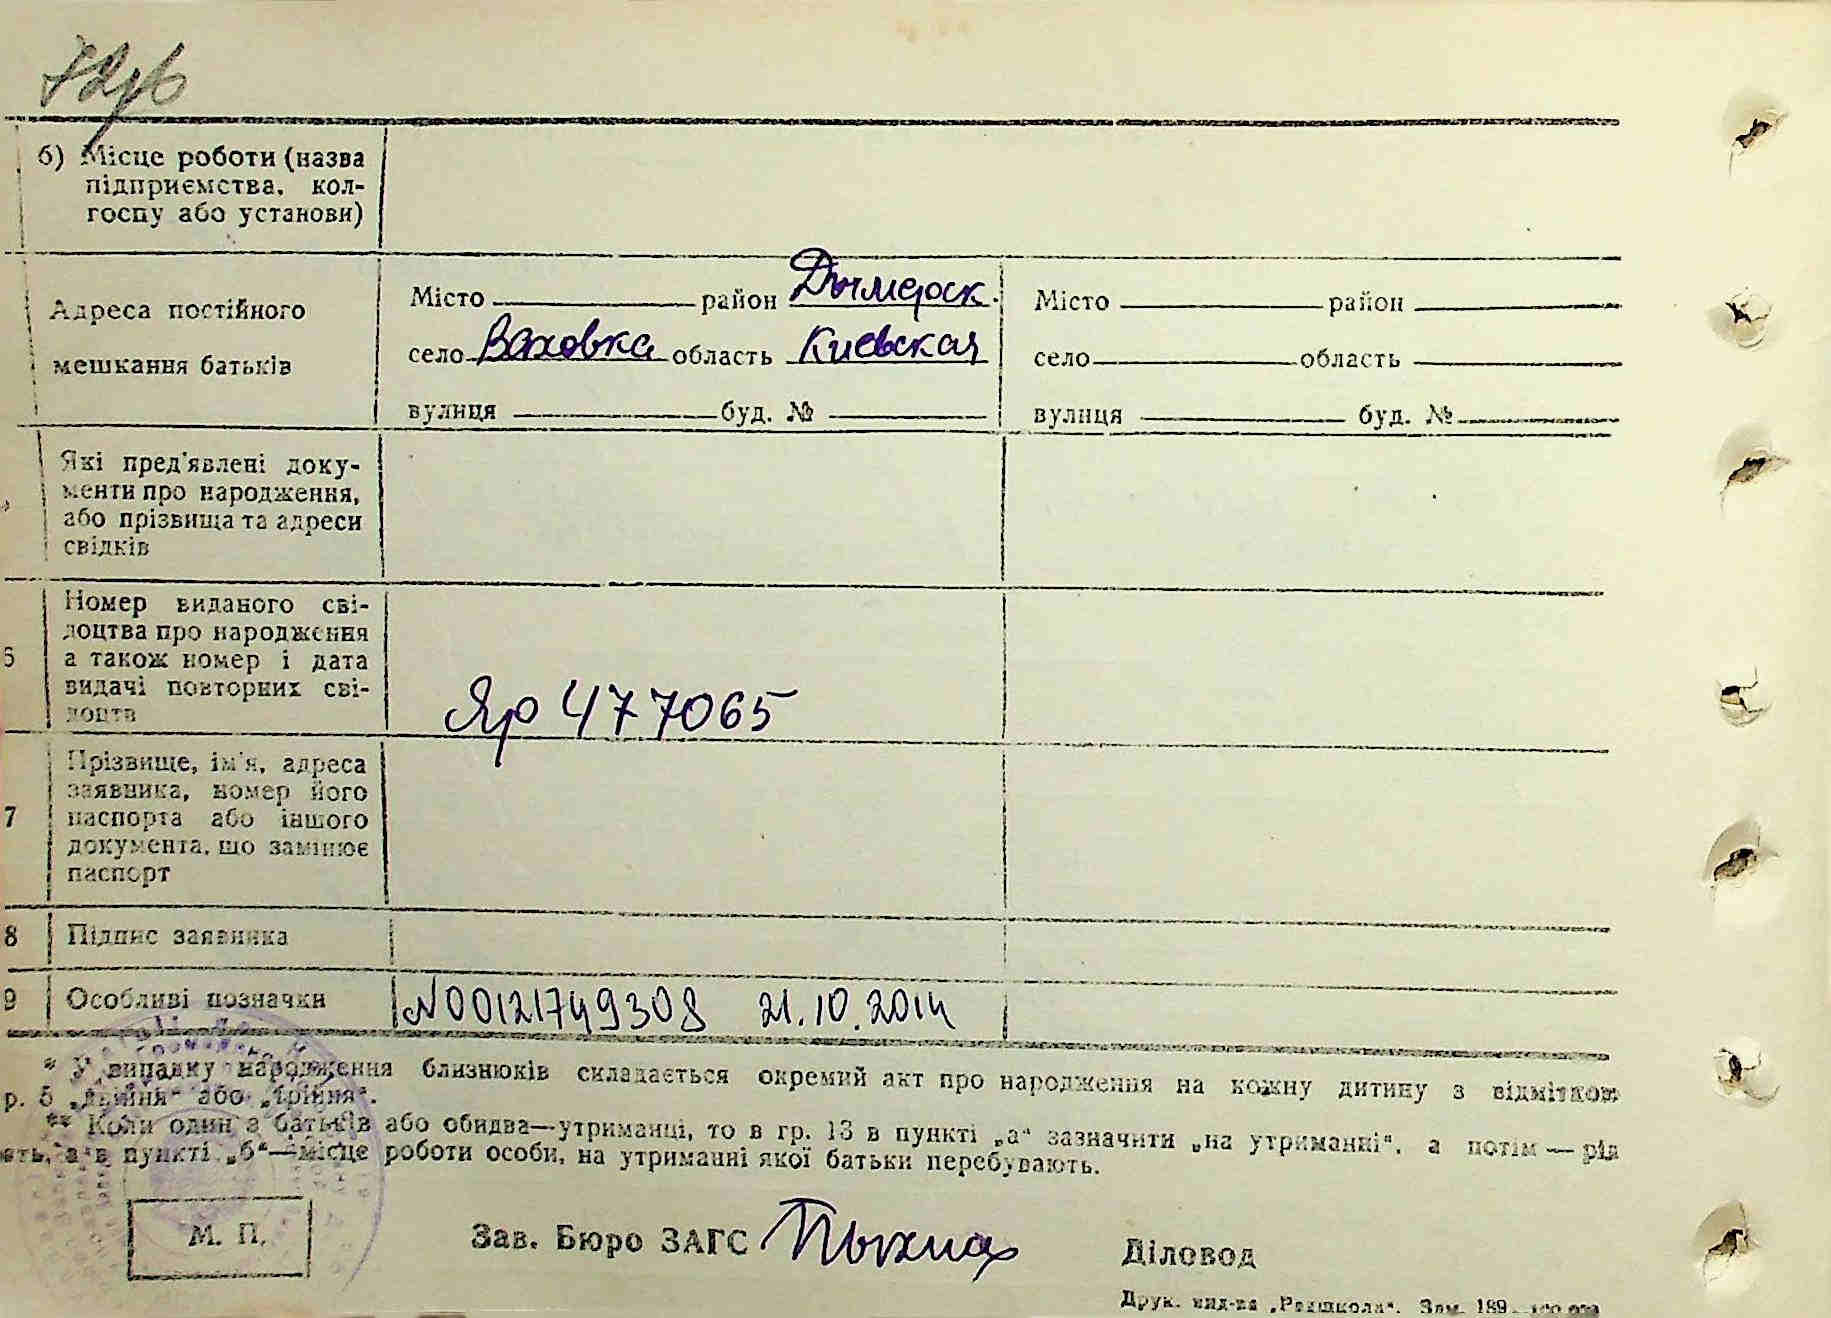 б) Місце роботи (назва
підприємства, кол-
госпу або установи)
Адреса постійного
мешкання батьків
Місто район Дымерск.
село Ваховка область Киевская
вулиця буд. №
Місто район
село область
вулиця буд. №
Які пред'явлені доку-
менти про народження,
або прізвища та адреси
свідків
6
Номер виданого сві-
доцтва про народження
а також номер і дата
видачі повторних сві-
доцтв
Яр 477065
7
Прізвище, ім'я, адреса
заявника, номер його
паспорта або іншого
документа, що замінює
паспорт
8 Підпис заявника
9 Особливі позначки N00121749308 21.10.2014
* У випадку народження близнюків складається окремий акт про народження на кожну дитину з відміткою
р. 5 „двійня“ або „трійня“.
** Коли один з батьків або обидва—утриманці, то в гр. 13 в пункті „а“ зазначити „на утриманні“, а потім — рід
а в пункті „б“—місце роботи особи, на утриманні якої батьки перебувають.
М. П.
Зав. Бюро ЗАГС
Діловод
Друк. вид-ва „Радшкола“. Зам. 189